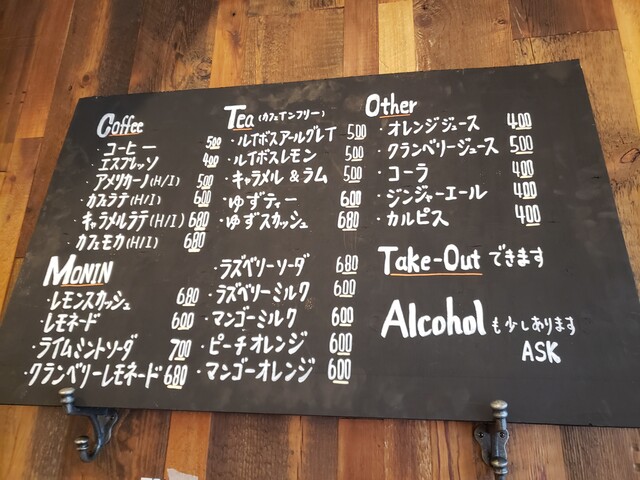 Coffee
・コーヒー 500
・エスプレッソ 400
・アメリカーノ(H/I) 500
・カフェラテ(H/I) 600
・キャラメルラテ(H/I) 680
・カフェモカ(H/I) 680
Tea (カフェインフリー)
・ルイボスアールグレイ 500
・ルイボスレモン 500
・キャラメル&ラム 500
・ゆずティー 600
・ゆずスカッシュ 680
Other
・オレンジジュース 400
・クランベリージュース 500
・コーラ 400
・ジンジャーエール 400
・カルピス 400
MONIN
・レモンスカッシュ 680
・レモネード 600
・ライムミントソーダ 700
・クランベリーレモネード 680
・ラズベリーソーダ 680
・ラズベリーミルク 600
・マンゴーミルク 600
・ピーチオレンジ 600
・マンゴーオレンジ 600
Take-Out できます
Alcohol も少しあります
ASK